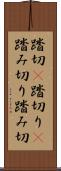 踏切（踏切り（
踏み切り踏み切